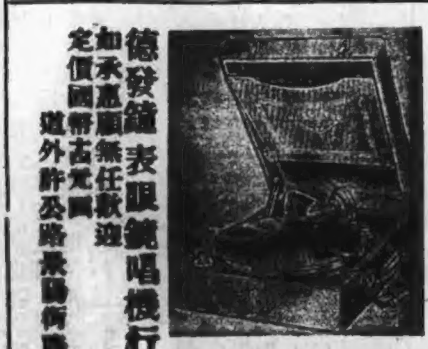 德發鐘表眼鏡唱機行
如承惠顧無任歡迎
定價國幣
道外許公路景陽街